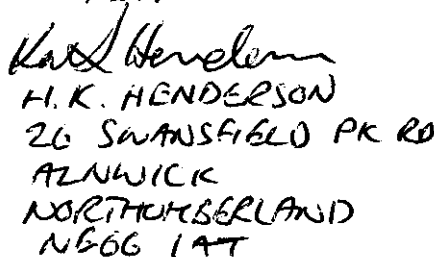 H.K. HENDERSON
26 SWANSFIELD PK RD
ALNWICK
NORTHUMBERLAND
NE66 1AT